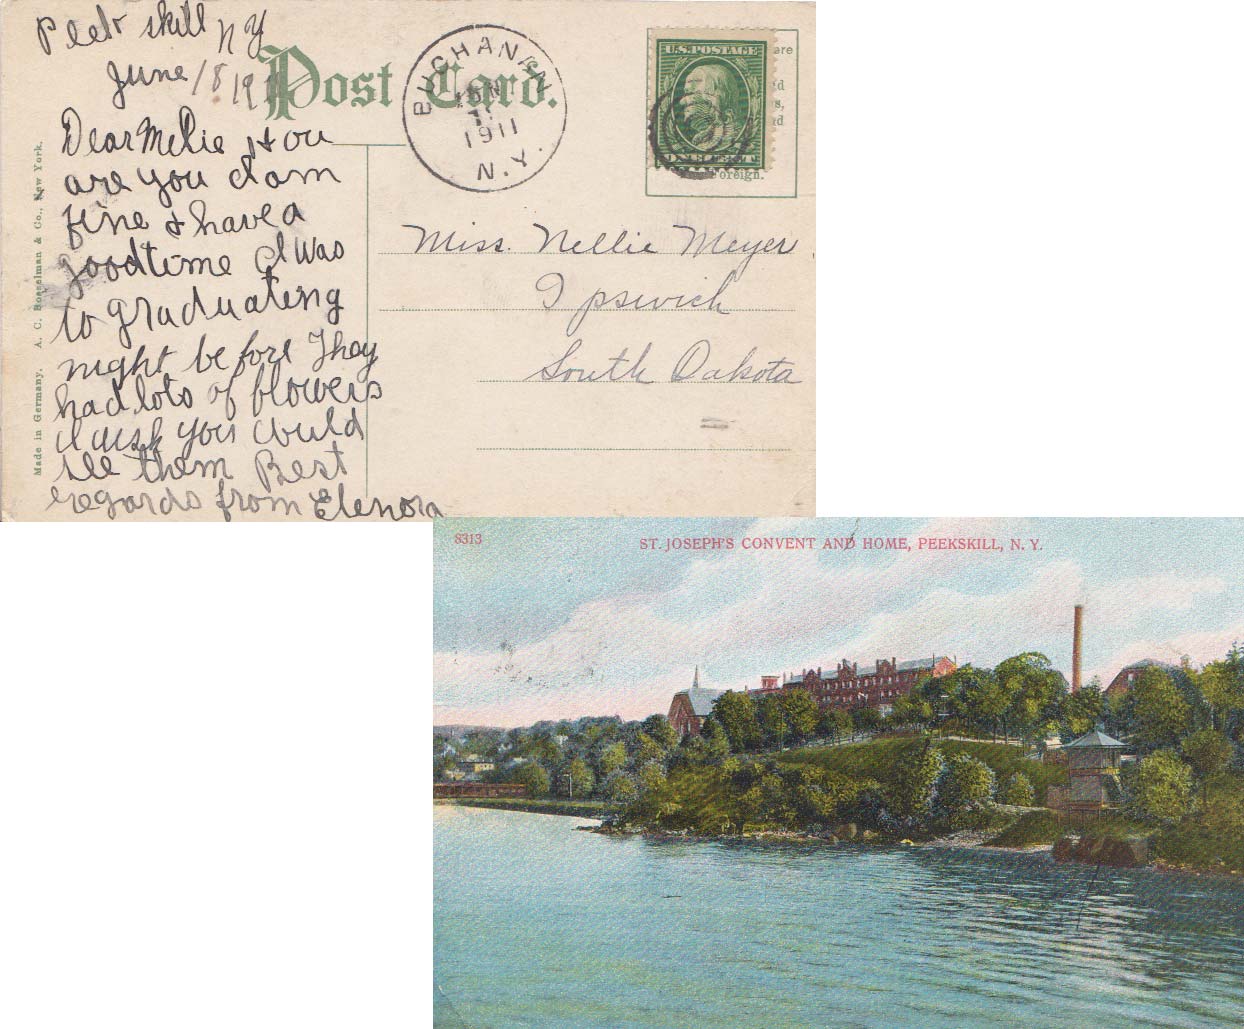 Peekskill NY
June 18 1911
Dear Nellie How
are you I am
fine & have a
good time I was
to graduating
night before They
had lots of flowers
I wish you could
see them Best
regards from Elenora
Post Card.
BUCHANAN
JUN
1911
N.Y.
U.S. POSTAGE
ONE CENT
Foreign.
Miss. Nellie Meyer
Ipswich
South Dakota
Made in Germany. A. C. Bosselman & Co., New York.
8313
ST. JOSEPH'S CONVENT AND HOME, PEEKSKILL, N. Y.